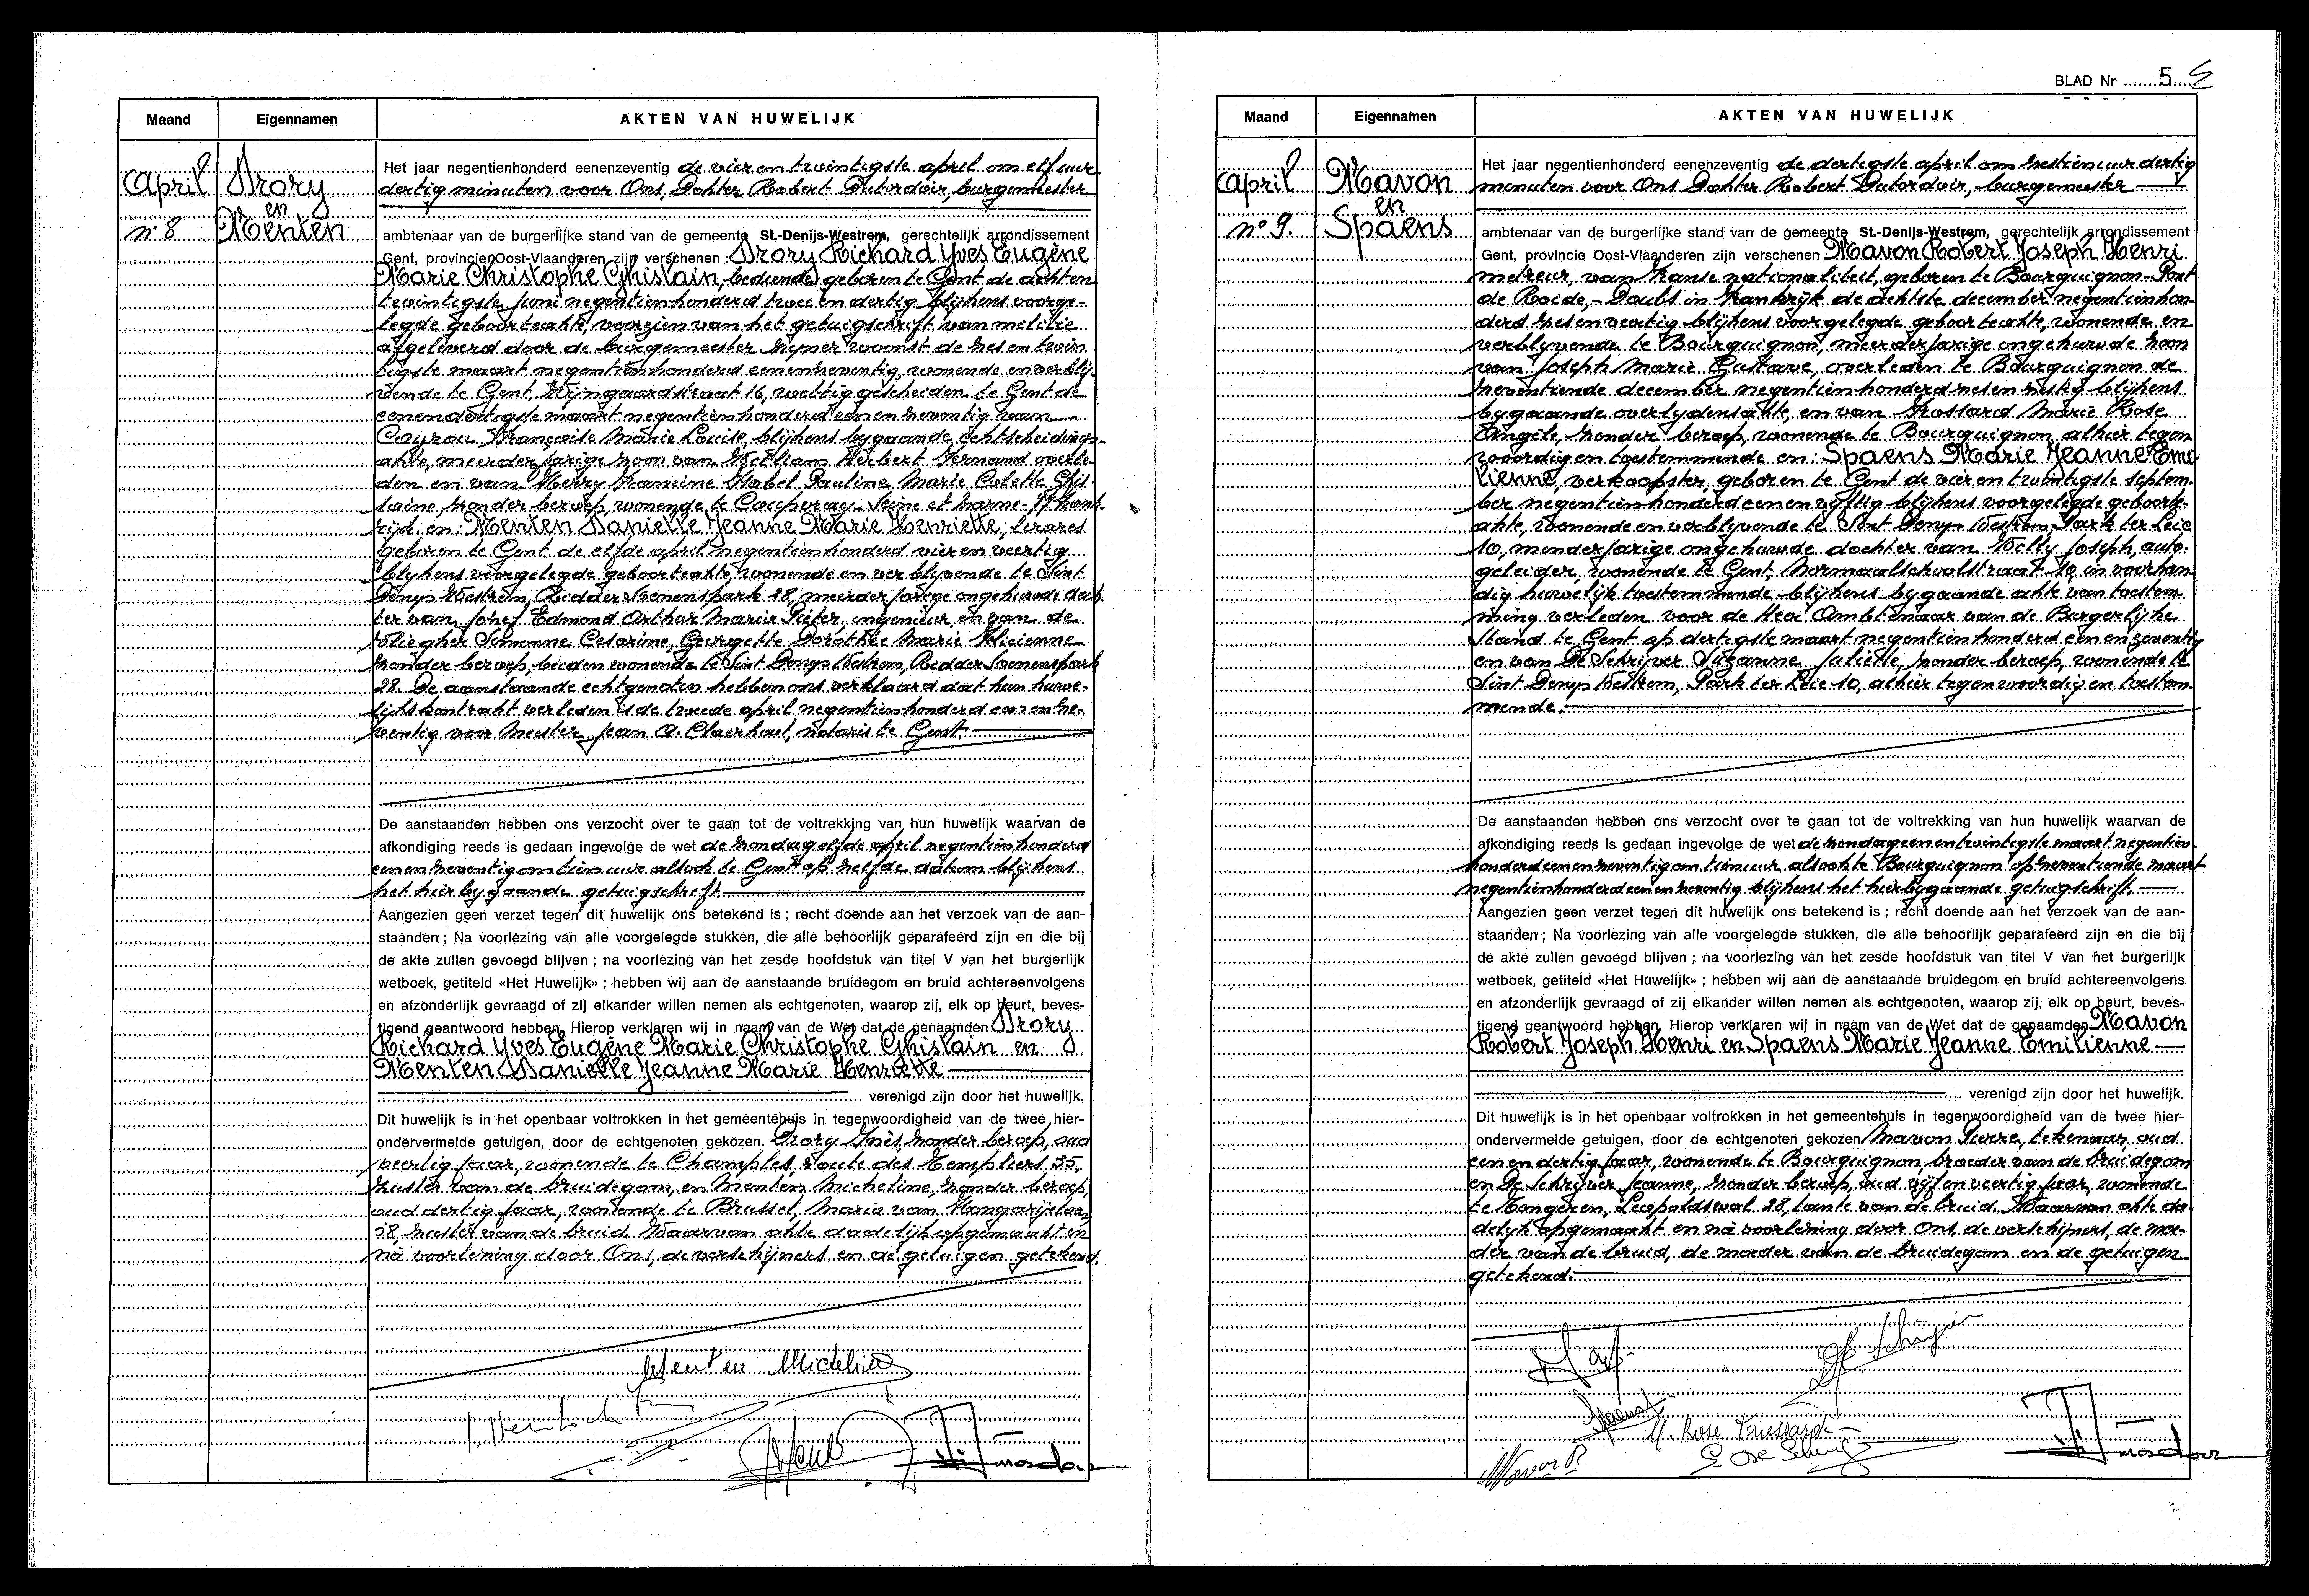 Maand Eigennamen AKTEN VAN HUWELIJK
April
n° 8
Drory
en
Menten
Het jaar negentienhonderd eenenzeventig de vier en twintigste april om elf uur
dertig minuten voor Ons, Dokter Robert Dutordoir, burgemeester
ambtenaar van de burgerlijke stand van de gemeente St.-Denijs-Westrem, gerechtelijk arrondissement
Gent, provincie Oost-Vlaanderen zijn verschenen : Drory Richard Yves Eugène
Marie Christophe Ghislain, bediende, geboren te Gent de acht en
twintigste juni negentienhonderd twee en dertig blijkens voorge-
legde geboorteakte, voorzien van het getuigschrift van militie
afgeleverd door de burgemeester zijner woonst de zes en twin
tigste maart negentienhonderd eenenzeventig, wonende en verblij-
vende te Gent, Wijngaardstraat 16, wettig gescheiden te Gent de
eenendertigste maart negentienhonderd een en zeventig van
Cayrou Françoise Marie Louise, blijkens bygaande echtscheidings-
akte, meerderjarige zoon van William Herbert Fernand overle-
den en van Merry Francine Isabel Pauline Marie Colette Ghis
laine, zonder beroep, wonende te Couperay - Seine et Marne - 77 Frank
rijk en : Menten Danielle Jeanne Marie Henriette, lerares
geboren te Gent de elfde april negentienhonderd vier en veertig
blijkens voorgelegde geboorteakte, wonende en verblyvende te Sint
Denys Westrem, Ridder Soenenspark 28, meerderjarige ongehuwde doch
ter van Jozef Edmond Arthur Marie Pieter, ingenieur, en van de
Vliegher Simonne Cesarine, Georgette Dorothée Marie Félicienne
zonder beroep, beiden wonende te Sint Denys Westrem, Ridder Soenenspark
28. De aanstaande echtgenoten hebben ons verklaard dat hun huwe-
lijkskontrakt verleden is de tweede april negentienhonderd een en ze-
ventig voor Meester Jean A. Claerhout, notaris te Gent.
De aanstaanden hebben ons verzocht over te gaan tot de voltrekking van hun huwelijk waarvan de
afkondiging reeds is gedaan ingevolge de wet de zondag elfde april negentienhonderd
eenenzeventig om tien uur alsook te Gent op zelfde datum blijkens
het hierbygaande getuigschrift.
Aangezien geen verzet tegen dit huwelijk ons betekend is ; recht doende aan het verzoek van de aan-
staanden ; Na voorlezing van alle voorgelegde stukken, die alle behoorlijk geparafeerd zijn en die bij
de akte zullen gevoegd blijven ; na voorlezing van het zesde hoofdstuk van titel V van het burgerlijk
wetboek, getiteld «Het Huwelijk» ; hebben wij aan de aanstaande bruidegom en bruid achtereenvolgens
en afzonderlijk gevraagd of zij elkander willen nemen als echtgenoten, waarop zij, elk op beurt, beves-
tigend geantwoord hebben. Hierop verklaren wij in naam van de Wet dat de genaamden Drory
Richard Yves Eugène Marie Christophe Ghislain en
Menten Danielle Jeanne Marie Henriette
verenigd zijn door het huwelijk.
Dit huwelijk is in het openbaar voltrokken in het gemeentehuis in tegenwoordigheid van de twee hier-
ondervermelde getuigen, door de echtgenoten gekozen. Drory Inès, zonder beroep, oud
veertig jaar, wonende te Champles, route des Templiers 35,
zuster van de bruidegom, en Menten Micheline, zonder beroep,
oud dertig jaar, wonende te Brussel, Maria van Hongarijelaan
28, zuster van de bruid. Waarvan akte dadelijk opgemaakt en
na voorlezing door Ons, de verschijners en de getuigen getekend.
Menten Micheline
BLAD Nr 5
Maand Eigennamen AKTEN VAN HUWELIJK
April
n° 9.
Mavon
en
Spaens
Het jaar negentienhonderd eenenzeventig de dertigste april om zestien uur dertig
minuten voor Ons Dokter Robert Dutordoir, burgemeester
ambtenaar van de burgerlijke stand van de gemeente St.-Denijs-Westrem, gerechtelijk arrondissement
Gent, provincie Oost-Vlaanderen zijn verschenen Mavon Robert Joseph Henri
metreur, van Franse nationaliteit, geboren te Bourguignon - Pont
de Roide, - Doubs in Frankrijk de achtste december negentienhon-
derd zes en veertig blijkens voorgelegde geboorteakte, wonende en
verblyvende te Bourguignon, meerderjarige ongehuwde zoon
van Joseph Marie Gustave, overleden te Bourguignon de
zeventiende december negentienhonderd zes en zestig blijkens
bygaande overlydensakte, en van Frossard Marie Rose
Angèle, zonder beroep, wonende te Bourguignon, alhier tegen
woordig en toestemmende en : Spaens Marie Jeanne Emi
lienne, verkoopster, geboren te Gent de vier en twintigste septem-
ber negentienhonderd een en vyftig blijkens voorgelegde geboorte-
akte, wonende en verblyvende te Sint Denys Westrem Park ter Leie
10, minderjarige ongehuwde dochter van Willy Joseph, auto-
geleider, wonende te Gent, Normaalschoolstraat 10, in voorhan-
dig huwelijk toestemmende blijkens bygaande akte van toestem-
ming verleden voor de Heer Ambtenaar van de Burgerlijke
Stand te Gent op dertigste maart negentienhonderd een en zeventig
en van De Schrijver Suzanne Juliette, zonder beroep, wonende te
Sint Denys Westrem, Park ter Leie 10, alhier tegenwoordig en toestem-
mende.
De aanstaanden hebben ons verzocht over te gaan tot de voltrekking van hun huwelijk waarvan de
afkondiging reeds is gedaan ingevolge de wet de zondag een en twintigste maart negentien-
honderd een en zeventig om tien uur alsook te Bourguignon op zeventiende maart
negentienhonderd een en zeventig blijkens het hierbygaande getuigschrift.
Aangezien geen verzet tegen dit huwelijk ons betekend is ; recht doende aan het verzoek van de aan-
staanden ; Na voorlezing van alle voorgelegde stukken, die alle behoorlijk geparafeerd zijn en die bij
de akte zullen gevoegd blijven ; na voorlezing van het zesde hoofdstuk van titel V van het burgerlijk
wetboek, getiteld «Het Huwelijk» ; hebben wij aan de aanstaande bruidegom en bruid achtereenvolgens
en afzonderlijk gevraagd of zij elkander willen nemen als echtgenoten, waarop zij, elk op beurt, beves-
tigend geantwoord hebben. Hierop verklaren wij in naam van de Wet dat de genaamden Mavon
Robert Joseph Henri en Spaens Marie Jeanne Emilienne
verenigd zijn door het huwelijk.
Dit huwelijk is in het openbaar voltrokken in het gemeentehuis in tegenwoordigheid van de twee hier-
ondervermelde getuigen, door de echtgenoten gekozen Mavon Pierre, tekenaar oud
een en dertig jaar, wonende te Bourguignon, broeder van de bruidegom
en De Schrijver Jeanne, zonder beroep, oud vijf en veertig jaar, wonende
te Tongeren, Leopoldswal 28, tante van de bruid. Waarvan akte da-
delyk opgemaakt en na voorlezing door Ons, de verschijners, de moe-
der van de bruid, de moeder van de bruidegom en de getuigen
getekend.
Spaens
M. Rose Frossard
Mavon P